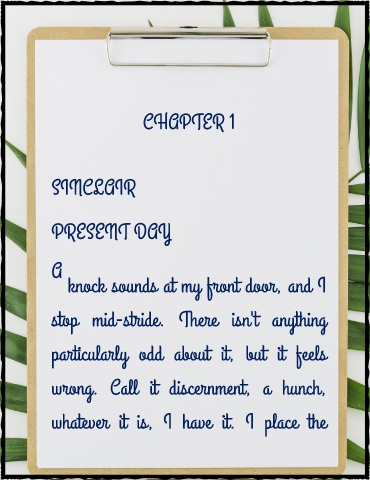 CHAPTER 1
SINCLAIR
PRESENT DAY
A knock sounds at my front door, and I
stop mid-stride. There isn't anything
particularly odd about it, but it feels
wrong. Call it discernment, a hunch,
whatever it is, I have it. I place the